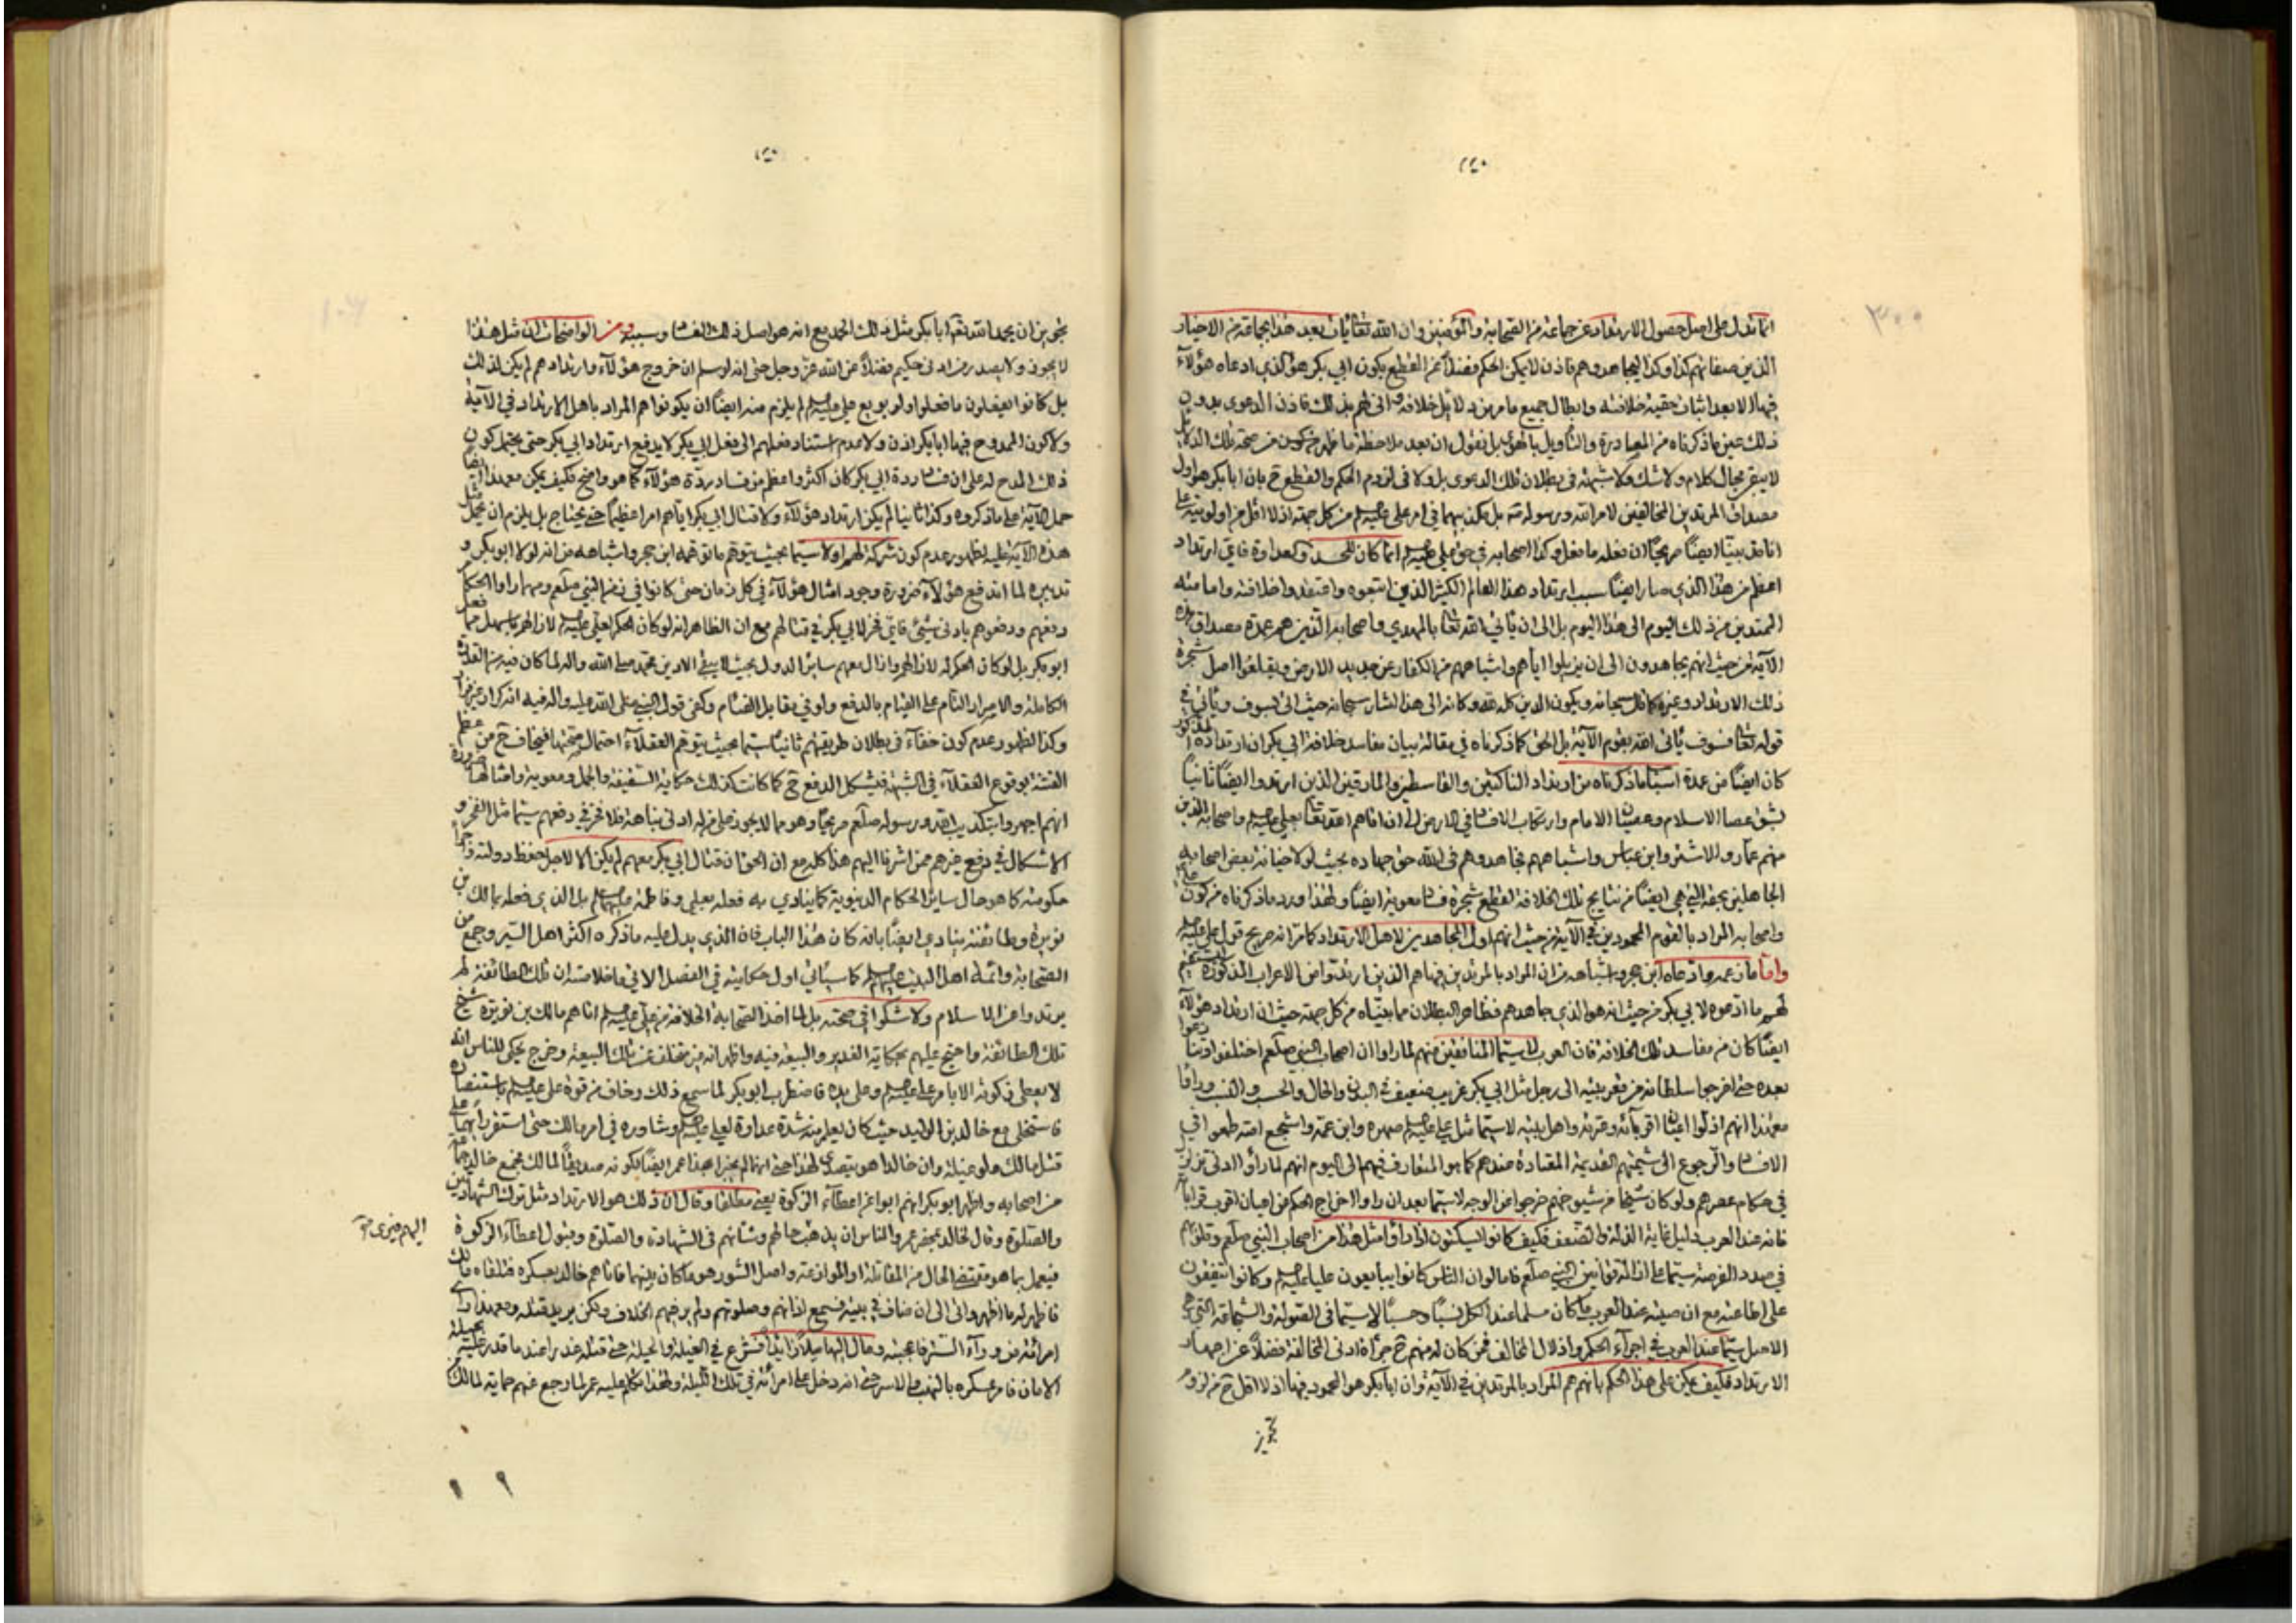 انما تدل على اصل حصول الارتداد عن جماعة من الصحابة والمؤمنين وان الله تعالى يأت بعد هذا بجماعة من الاخيار
الذين صفاتهم كذا وكذا ليجاهدوهم فاذن لا يمكن الحكم فضلاً عن القطع بكون ابي بكر هو الذي ادعاه هؤلاء
فيها الا بعد اثبات حقية خلافته وابطال جميع ما مر من دلائل خلافه وانى لهم بذلك فاذن الدعوى بدون
ذلك عين ما ذكرناه من المصادرة والتأويل بالهوى بل نقول ان بعد ملاحظة ما ظهر من صحة تلك الدلائل
لا يبقى مجال كلام ولا شك ولا شبهة في بطلان تلك الدعوى بل ولا في لزوم الحكم والقطع ح بان ابا بكر هو اول
مصداق المرتدين المخالفين لامر الله ورسوله فيه بل يكذبهما في امر علي عليه السلم من كل جهة اذ لا اقل من اولويته على
انا قد بينا ايضاً صريحاً ان فعله ما فعل وكذا اصحابه في حق علي عليه السلم انما كان للحسد والعداوة فاي ارتداد
اعظم من هذا الذي صار ايضاً سبب ارتداد هذا العالم الكثير الذين اتبعوه واعتقدوا خلافته وامامته
الممتدين من ذلك اليوم الى هذا اليوم بل الى ان يأتي الله تعالى بالمهدي واصحابه الذين هم عمدة مصداق هذه
الآية من حيث انهم يجاهدون الى ان يزيلوا اياهم واشباههم من الكفار عن جديد الارض ويقلعوا اصل شجرة
ذلك الارتداد وغيره كما قال سبحانه ويكون الدين كله لله وكانه الى هذا اشار سبحانه حيث اتى بسوف ويأتي في
قوله تعالى فسوف يأتي الله بقوم الآية بل الحق كما ذكرناه في مقالة بيان مفاسد خلافة ابي بكر ان ارتداده المذكور
كان ايضاً من عمدة اسباب ما ذكرناه من ارتداد الناكثين والقاسطين والمارقين الذين ارتدوا ايضاً ثانياً
بشق عصا الاسلام وعصيان الامام وارتكاب الافساد في الارض الى ان اتاهم الله تعالى بعلي عليه السلم واصحابه الذين
منهم عمار والاشتر وابن عباس واشباههم فجاهدوهم في الله حق جهاده بحيث لولا خيانة بعض اصحابه
الجاهلين بحقه التي هي ايضاً من نتايج تلك الخلافة لقطع شجرة فساد معوية ايضاً ولهذا ورد ما ذكرناه من كون علي
واصحابه المراد بالقوم المحمودين في الآية من حيث انهم اول المجاهدين لاهل الارتداد كما مر انه صريح قول علي عليه السلم
واما ما زعمه وادعاه ابن حجر واشباهه من ان المراد بالمرتدين فيها هم الذين ارتدوا من الاعراب المذكورة
لهم ما ادعوه لابي بكر من حيث انه هو الذي جاهدهم فظاهر البطلان مما بيناه من كل جهة حيث ان ارتداد هؤلاء
ايضاً كان من مفاسد تلك الخلافة فان العرب لا سيما المنافقين منهم لما راوا ان اصحاب النبي صلعم اختلفوا وتنازعوا
بعده حتى اخرجوا سلطانه من قعر بيته الى رجل مثل ابي بكر غريب ضعيف في البدن والحال والحسب والنسب وراوا
معهذا انهم اذلوا ايضاً اقربآئه وعترته واهل بيته لا سيما مثل علي عليه السلم صهره وابن عمه واشجع امته طمعوا في
الافساد والرجوع الى شيمتهم القديمة المعتادة عندهم كما هو المتعارف فيهم الى اليوم انهم لما راوا ادنى تزلزل
في حكام عصرهم ولو كان شيخا من شيوخهم خرجوا عن الوجه لا سيما بعد ان راوا اخراج الحكم من اعيان اقرب قرابآئه
فانه عند العرب دليل غاية الذلة والضعف فكيف كانوا ليسكتون اذا راوا مثل هذا من اصحاب النبي صلعم وقلوبهم
في صدد الفرصة سيما على ازالة قوانين النبي صلعم فما لو ان الناس كانوا يبايعون عليا عليه السلم وكانوا يتفقون
على اطاعته مع ان صيته عند العرب ما كان مسلما عند الكل نسبًا وحسبًا لا سيما في الصولة والشجاعة التي هي
الاصل سيما عند العرب في اجرآء الحكم واذلال المخالف فمن كان له منهم ح جرأة ادنى المخالفة فضلاً عن اجهار
الارتداد فكيف يمكن على هذا الحكم بانهم هم المراد بالمرتدين في الآية وان ابا بكر هو المحمود فيها اذ لا اقل ح من لزوم
تجويز ان يحمد الله تعالى ابا بكر مثل ذلك الحمد مع انه هو اصل ذلك الفساد وسببه ومن الواضحات ان مثل هذا
لا يجوز ولا يصدر من ادنى حكيم فضلاً عن الله عز وجل حتى انه لو سلم ان خروج هؤلآء وارتدادهم لم يكن لذلك
بل كانوا يفعلون ما فعلوا ولو بويع علي عليه السلم لم يلزم منه ايضاً ان يكونوا هم المراد باهل الارتداد في الآية
ولا كون الممدوح فيها ابا بكر اذن ولا عدم استناد فعلهم الى فعل ابي بكر لا يدفع ارتداد ابي بكر حتى يحتمل كون
ذلك المدح له على ان فساد ردة ابي بكر كان اكثر واعظم من فساد ردة هؤلآء كما هو واضح فكيف يمكن معهذا ايضاً
حمل الآية على ما ذكروه وكذا ثانيا لم يكن ارتداد هؤلآء ولا قتال ابي بكر اياهم امرا عظيماً حتى يحتاج بل يلزم ان يحمل مثل
هذه الآية عليه لظهور عدم كون شركة لهم اولا سيما بحيث يتوهم ما توهمه ابن حجر واشباهه من انه لولا ابو بكر و
تدبيره لما اندفع هؤلآء ضرورة وجود امثال هؤلآء في كل زمان حتى كانوا في زمن النبي صلعم ومهما راوا الحكام
دفعهم ودفعوهم بادنى شيء فاي فخر لابي بكر في قتالهم مع ان الظاهر انه لو كان الحكم لعلي عليه السلم لازالهم باسهل مما فعل
ابو بكر بل لو كان الحكم له لازالهم وازال معهم ساير الدول بحيث لا يبقى الا دين محمد صلى الله واله لما كان فيه من القدرة
الكاملة والاصرار التام على القيام بالدفع ولو في مقابل الفئام وكفى قول النبي صلى الله عليه واله فيه انه كرار غير فرار
وكذا الظهور عدم كون خفآء في بطلان طريقهم ثانياً سيما بحيث يتوهم العقلآء احتمال صحتها فيخاف ح من عظم
الفتنة بوقوع العقلآء في الشبهة فيشكل الدفع ح كما كانت كذلك حكاية السقيفة والجمل ومعوية وامثالها ضرورة
انهم اجهروا بتكذيب الله ورسوله صلعم صريحاً وهو مما لا يجوز على من له ادنى نباهة فلا فخر في دفعهم سيما مثل الفخر و
الاشكال في دفع غيرهم ممن اشرنا اليهم هذا كله مع ان الحق ان قتال ابي بكر معهم لم يكن الا لاجل حفظ دولته
حكومته كما هو حال ساير الحكام الدنيوية كما ينادي به فعله بعلي وفاطمة عليهما السلم بل الذي فعله بمالك بن
نويرة وطائفته ينادي ايضاً بانه كان هذا الباب فان الذي يدل عليه ما ذكره اكثر اهل السير وجمع من
الصحابة وائمة اهل البيت عليهم السلم كما سيأتي اول حكايته في الفصل الاتي ما خلاصته ان تلك الطائفة لم
يرتدوا عن الاسلام ولا شكوا في صحته بل لما اخذ الصحابة الخلافة من علي عليه السلم اتاهم مالك بن نويرة شيخ
تلك الطائفة واحتج عليهم بحكاية الغدير والبيعة فيه واظهر انه ممن تخلف عن تلك البيعة وخرج يحكي للناس انه
لا يعطي زكوته الا بامر علي عليه السلم وعلى يده فاضطرب ابو بكر لما سمع ذلك وخاف من قوة علي عليه السلم باستنصاره
فاستخلى مع خالد بن الوليد حيث كان يعلم منه شدة عداوة لعلي عليه السلم وشاوره في امر مالك حتى استقر رأيهما على
قتل مالك ولو غيلة وان خالدا هو يتصدى لهذا حتى انهما لم يخبرا بهذا عمر ايضاً لكونه صديقاً لمالك فجمع خالد جماعة
من اصحابه واظهر ابو بكر انهم ابوا عن اعطآء الزكوة يعني مطلقا وقال ان ذلك هو الارتداد مثل ترك الشهادتين
والصلوة وقال لخالد بمحضر عمر والناس ان يذهب
اليهم فيرى
حالهم وشأنهم في الشهادة والصلوة وقبول اعطآء الزكوة
فيعمل بما هو مقتضى الحال من المقاتلة او الموادعة واصل الشور هو ما كان بينهما فاتاهم خالد بعسكره فتلقاه مالك
فاظهر له ما اظهر واتى الى ان ضاف في بيته فسمع اذانهم وصلوتهم ولم ير منهم الخلاف ولكن يريد قتله ومعهذا راى
امرأته من ورآء الستر فاعجبته ومال اليها ميلاً زايداً فشرع في الغيلة والحيلة حتى قتله غدرا عند ما قدر عليه بحيلة
الامان فامر عسكره بالنهب والاسر حتى انه دخل على امرأته في تلك الليلة ولهذا تكلم عليه عمر لما رجع عنهم حماية لمالك